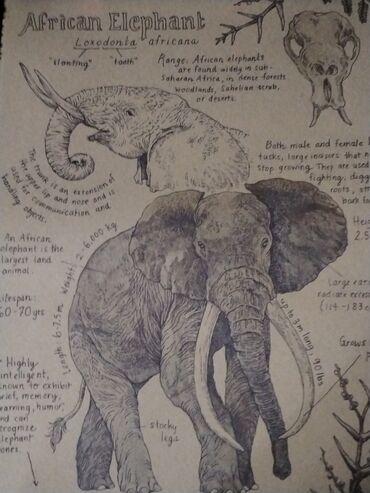 African Elephant
Loxodonta africana
"slanting" "tooth"
Range: African elephants
are found widely in sub-
Saharan Africa, in dense forests
woodlands, Sahelian scrub,
or deserts.
The trunk is an extension of
the upper lip and nose and is
used for communication and
handling objects.
Both male and female
tusks, large incisors that
stop growing. They are used
fighting, digg
roots, 
bark
An African
elephant is the
largest land
animal.
Lifespan:
60-70 yrs
Highly
intelligent,
known to exhibit
grief, memory,
learning, humor,
and can
recognize
elephant
bones.
Weight: 2-6,005 kg
Length: 6-7.5 m
Hei
2.5
Large ears
radiate excess
(114-183 c
Grows
up to 3m long
90 lbs
stocky
legs